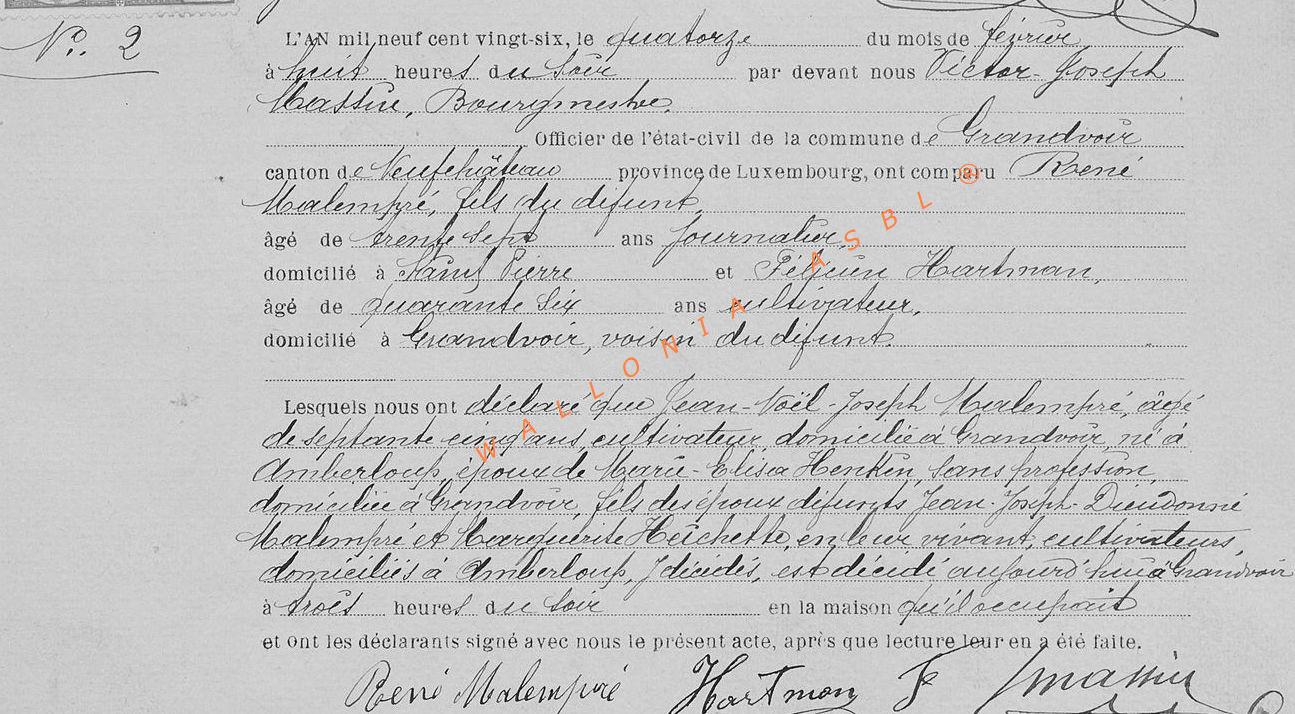 N°. 2
L'AN mil neuf cent vingt-six, le quatorze du mois de février
à huit heures du soir par devant nous Victor-Joseph
Massin, Bourgmestre,
Officier de l'état-civil de la commune de Grandvoir
canton de Neufchâteau province de Luxembourg, ont comparu René
Malempré, fils du défunt,
âgé de trente sept ans journalier,
domicilié à Saint Pierre et Félicien Hartman,
âgé de quarante six ans cultivateur,
domicilié à Grandvoir, voisin du défunt.
Lesquels nous ont déclaré que Jean-Noël-Joseph Malempré, âgé
de septante cinq ans, cultivateur, domicilié à Grandvoir, né à
Amberloup, époux de Marie-Elisa Henkin, sans profession,
domiciliée à Grandvoir, fils des époux défunts Jean-Joseph-Dieudonné
Malempré et Marguerite Heichette, en leur vivant, cultivateurs,
domiciliés à Amberloup, y décédés, est décédé aujourd'hui à Grandvoir
à trois heures du soir en la maison qu'il occupait
et ont les déclarants signé avec nous le présent acte, après que lecture leur en a été faite.
René Malempré Hartman F Massin
WALLONIA ASBL ®